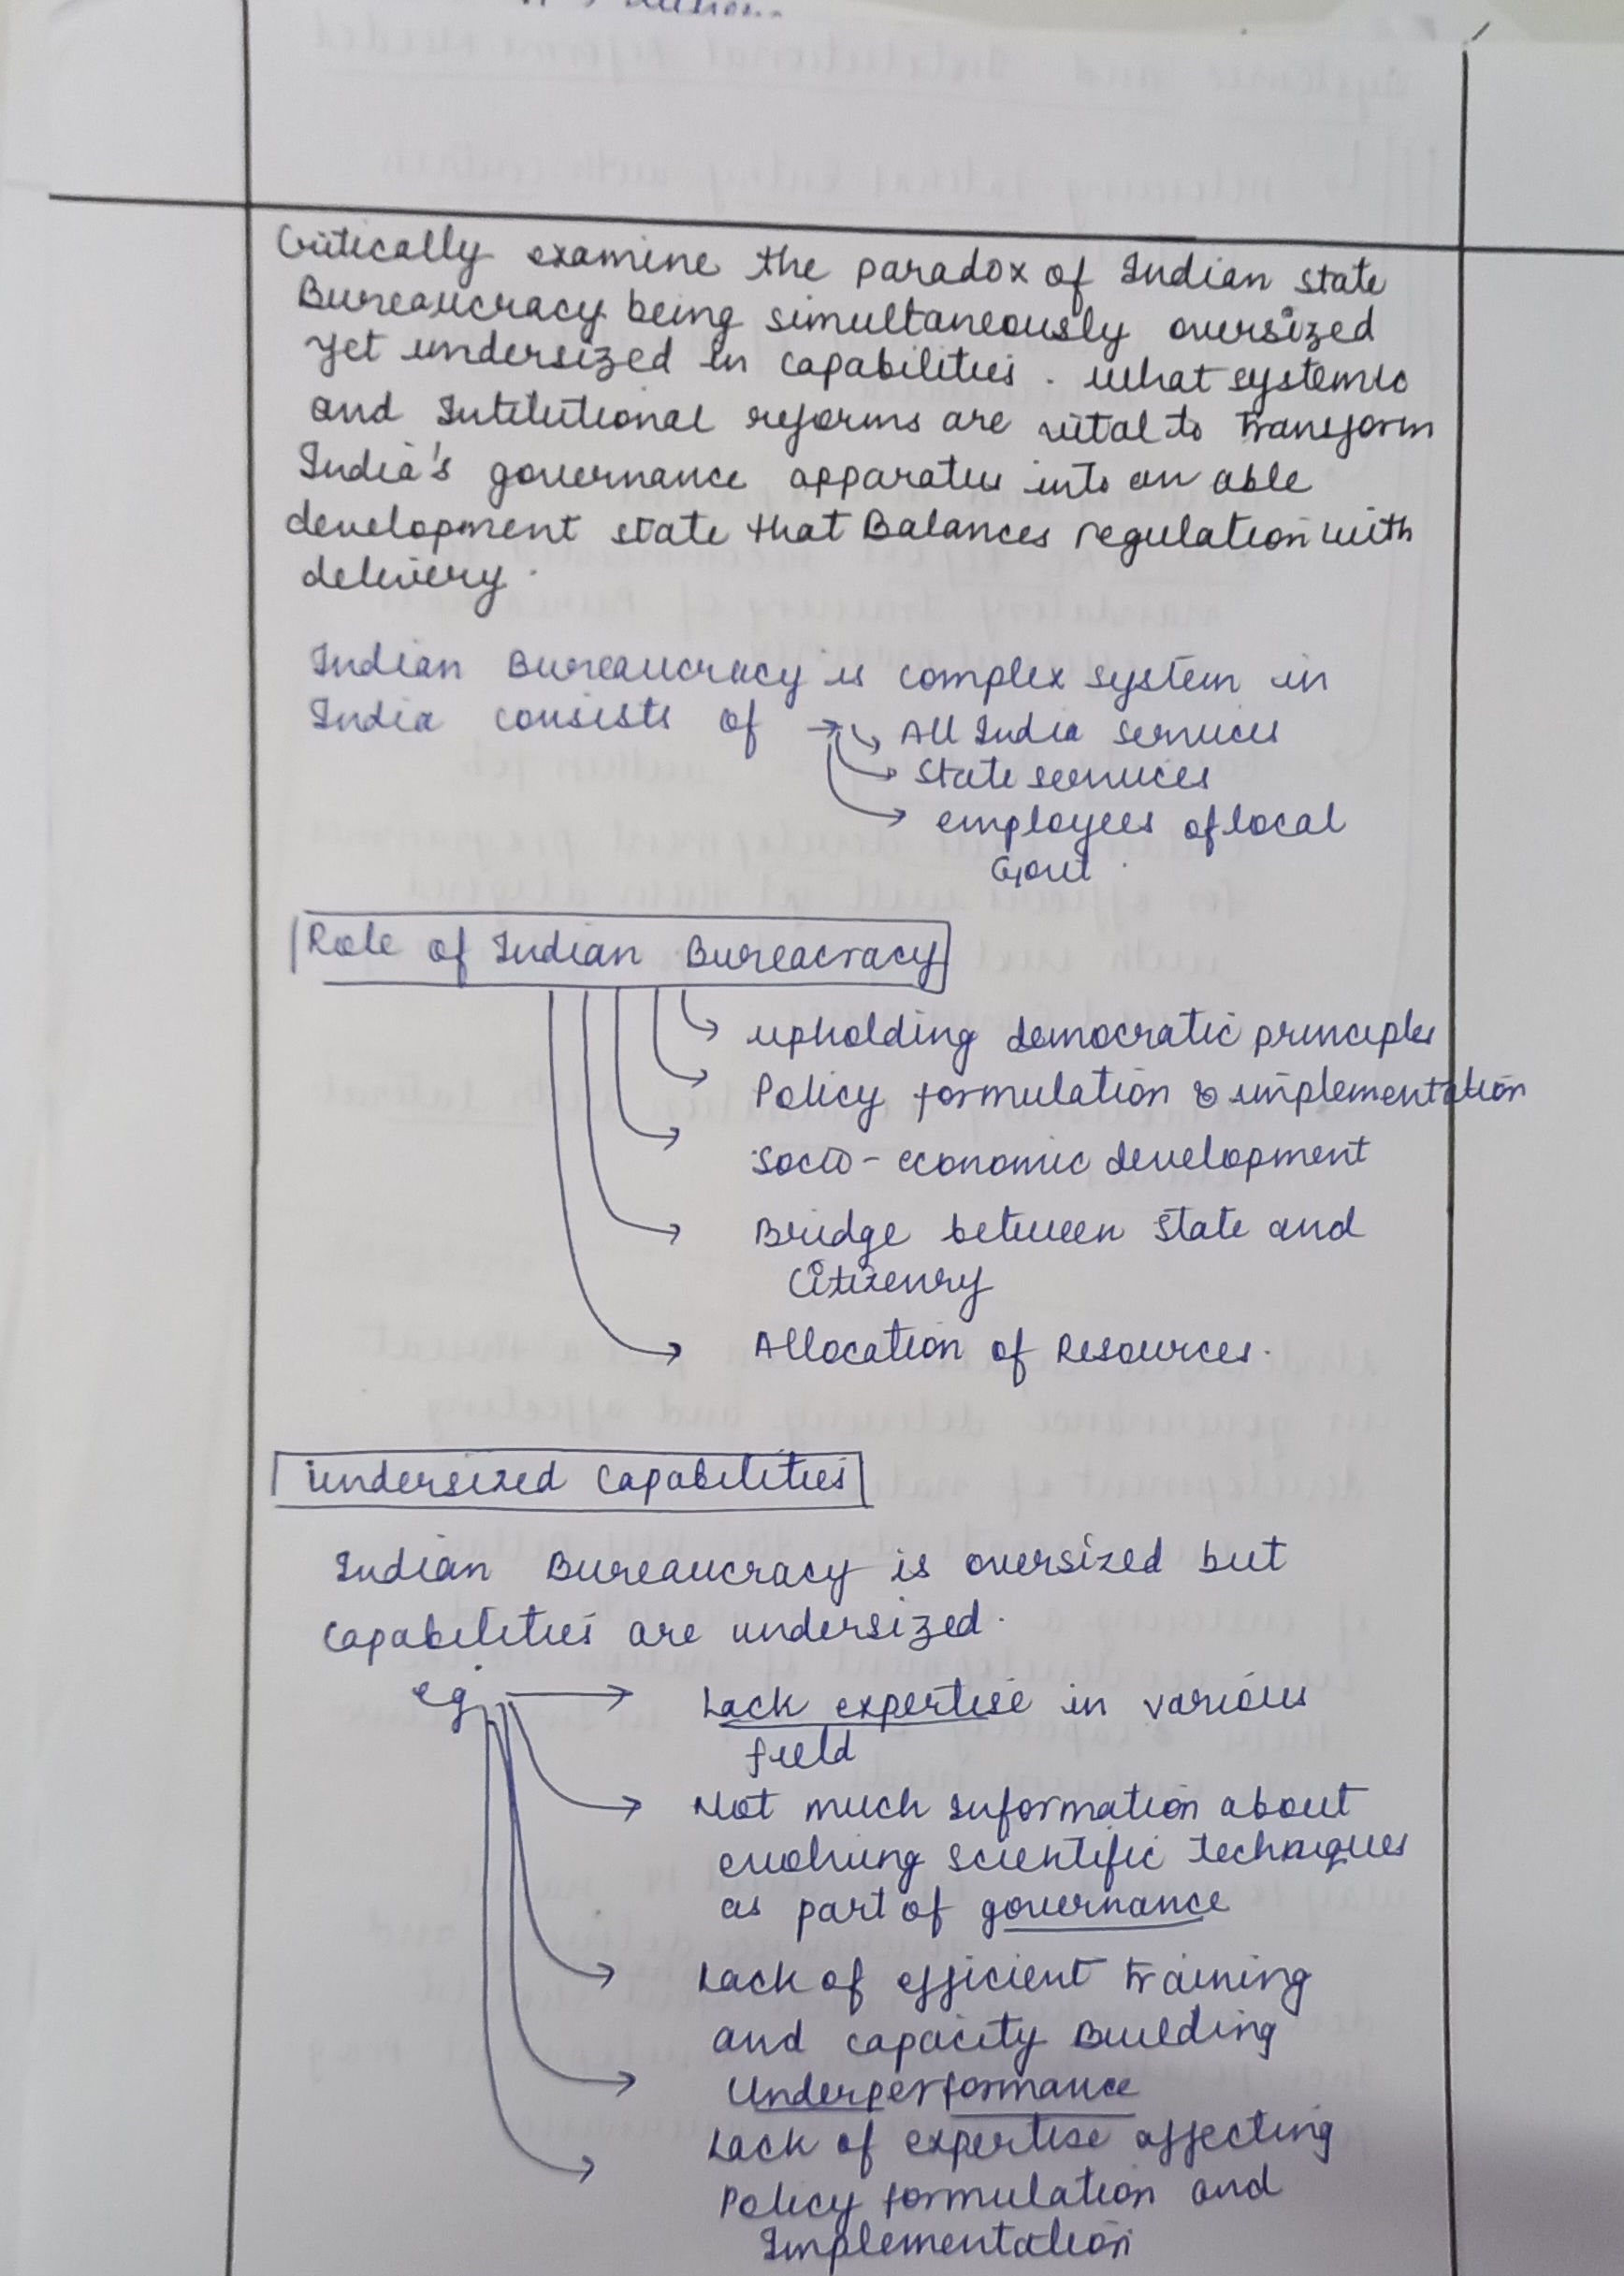 Critically examine the paradox of Indian state
Bureaucracy being simultaneously oversized
yet undersized in capabilities. what systemic
and Intitutional reforms are vital to transform
India's governance apparatus into an able
development state that Balances regulation with
delivery.
Indian Bureaucracy is complex system in
India consists of → All India services
→ State services
→ employees of local
Govt.
Role of Indian Bureacracy
→ upholding democratic principles
→ Policy formulation & implementation
→ Socio-economic development
→ Bridge between state and
Citizenry
→ Allocation of Resources.
Undersized Capabilities
Indian Bureaucracy is oversized but
capabilities are undersized.
eg → Lack expertise in various
field
→ Not much information about
evolving scientific techniques
as part of governance
→ Lack of efficient training
and capacity Building
→ Underperformance
→ Lack of expertise affecting
Policy formulation and
Implementation